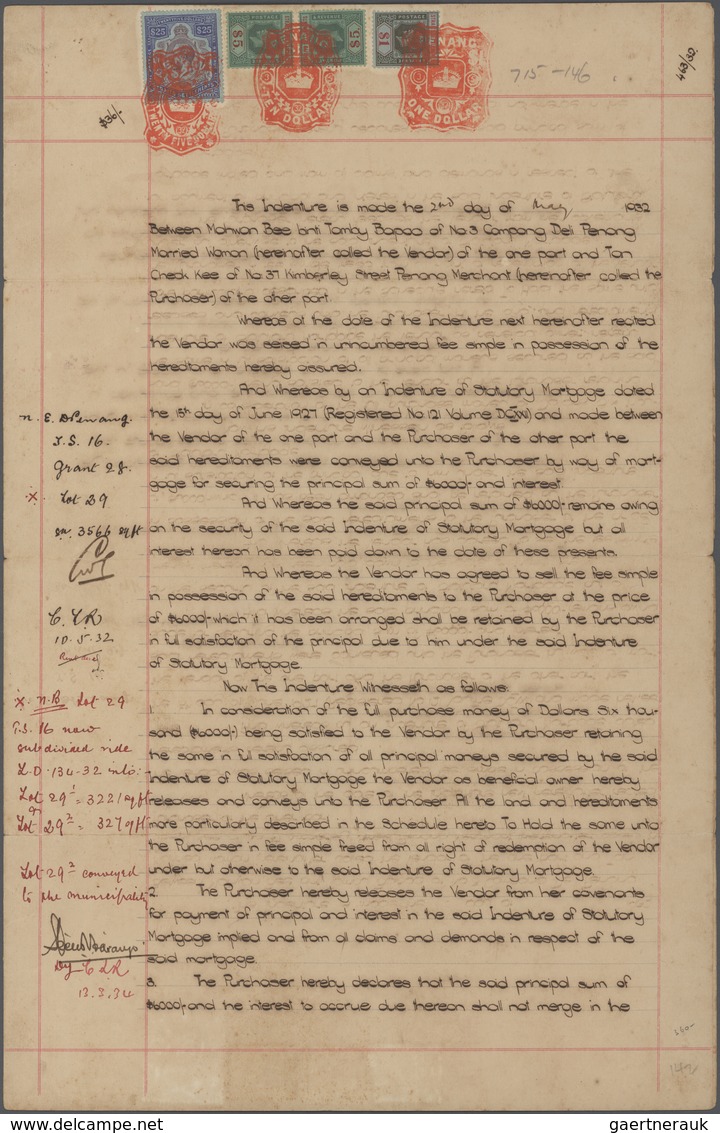 $25 $25
POSTAGE
& REVENUE
POSTAGE
$5
$5
$1
PENANG
PENANG
TWENTY FIVE DOLLARS
TEN DOLLARS
ONE DOLLAR
$36/-
715-146
463/32
This Indenture is made the 2nd day of May 1932
Between Mohwan Bee binti Tamby Bapoo of No 3 Compong Deli Penang
Married Woman (hereinafter called the Vendor) of the one part and Tan
Cheak Kee of No 37 Kimberley Street Penang Merchant (hereinafter called the
Purchaser) of the other part.
Whereas at the date of the Indenture next hereinafter recited
the Vendor was seised in unincumbered fee simple in possession of the
hereditaments hereby assured.
And Whereas by an Indenture of Statutory Mortgage dated
the 15th day of June 1927 (Registered No 121 Volume) and made between
the Vendor of the one part and the Purchaser of the other part the
said hereditaments were conveyed unto the Purchaser by way of mort-
gage for securing the principal sum of $6000/- and interest.
And Whereas the said principal sum of $6000/- remains owing
on the security of the said Indenture of Statutory Mortgage but all
interest thereon has been paid down to the date of these presents.
And Whereas the Vendor has agreed to sell the fee simple
in possession of the said hereditaments to the Purchaser at the price
of $6000/- which it has been arranged shall be retained by the Purchaser
in full satisfaction of the principal due to him under the said Indenture
of Statutory Mortgage.
Now This Indenture Witnesseth as follows:
1. In consideration of the full purchase money of Dollars Six thou-
sand ($6000/-) being satisfied to the Vendor by the Purchaser retaining
the same in full satisfaction of all principal moneys secured by the said
Indenture of Statutory Mortgage the Vendor as beneficial owner hereby
releases and conveys unto the Purchaser All the land and hereditaments
more particularly described in the Schedule hereto To Hold the same unto
the Purchaser in fee simple freed from all right of redemption of the Vendor
under but otherwise to the said Indenture of Statutory Mortgage.
2. The Purchaser hereby releases the Vendor from her covenants
for payment of principal and interest in the said Indenture of Statutory
Mortgage implied and from all claims and demands in respect of the
said mortgage.
3. The Purchaser hereby declares that the said principal sum of
$6000/- and the interest to accrue due thereon shall not merge in the
n. E. D Penang.
T.S. 16.
Grant 28.
x Lot 29
3566 sq ft
C. L. R
10.5.32
x n.B Lot 29
T.S. 16 now
subdivided vide
L.O. 134-32 into:
Lot 29¹ = 3221 sq ft
Lot 29² = 327 sq ft
Lot 29² conveyed
to the municipality
Dy C L R
13.3.34
560-
149
gaertnerauk